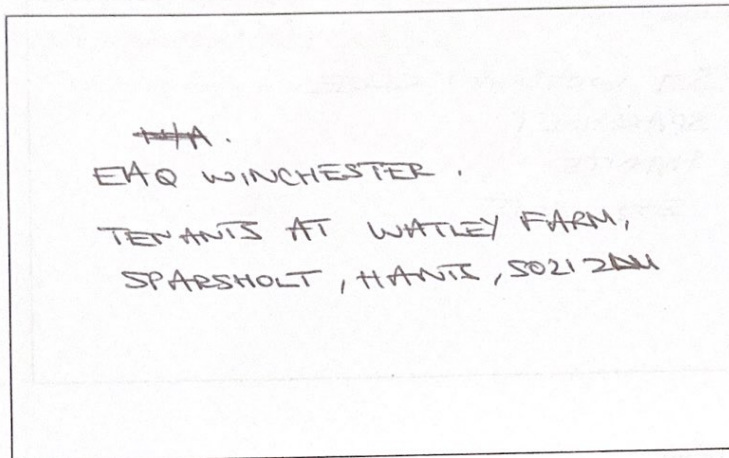 N/A.
EHQ WINCHESTER.
TENANTS AT WATLEY FARM,
SPARSHOLT, HANTS, SO21